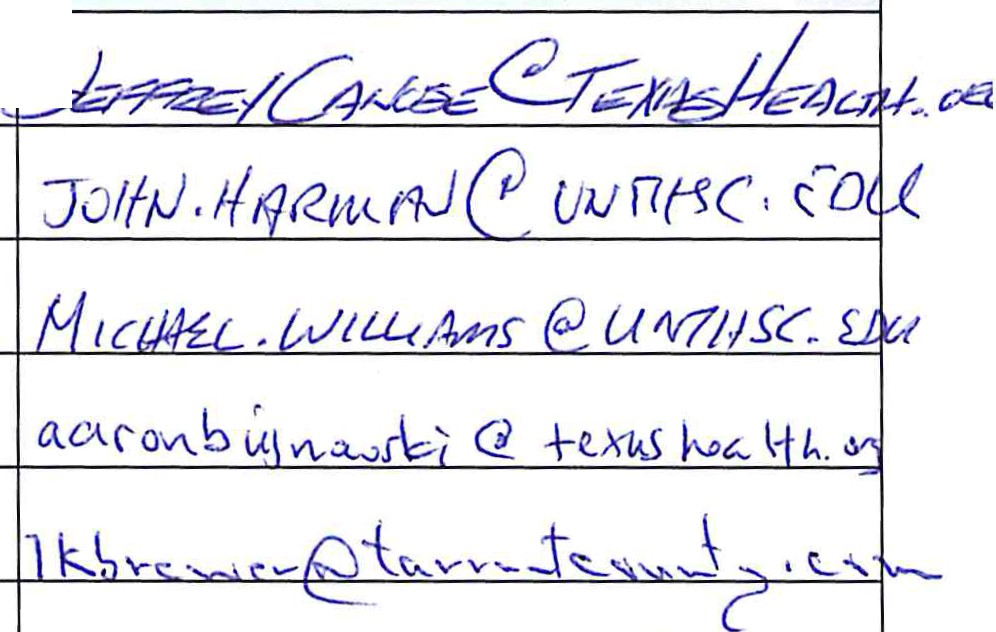 JEFFREYCANOSE@TEXASHEALTH.ORG
JOHN.HARMAN@UNTHSC.EDU
MICHAEL.WILLIAMS@UNTHSC.EDU
@texashealth.org
lkbrewer@tarrantcounty.com